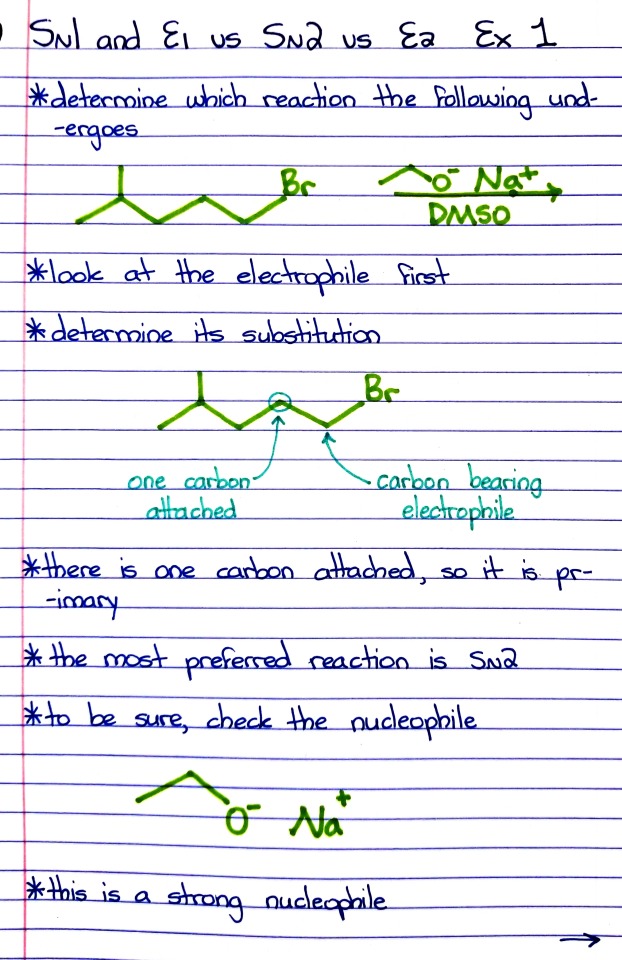 SN1 and E1 vs SN2 vs E2 Ex 1
*determine which reaction the following und-
-ergoes
Br O⁻ Na⁺
DMSO
*look at the electrophile first
*determine its substitution
Br
one carbon carbon bearing
attached electrophile
*there is one carbon attached, so it is pr-
-imary
*the most preferred reaction is SN2
*to be sure, check the nucleophile
O⁻ Na⁺
*this is a strong nucleophile
→